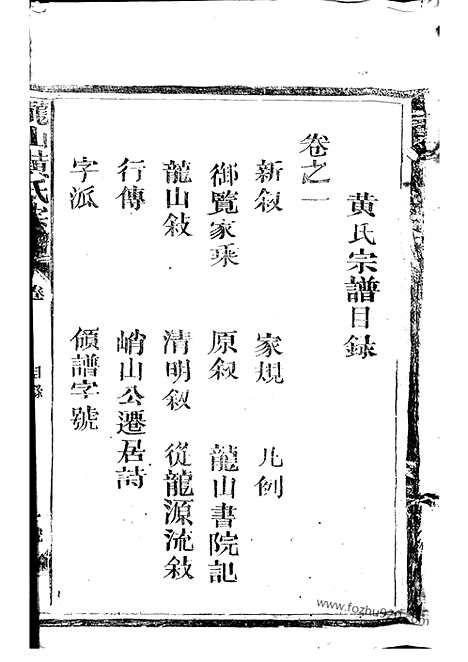 黄氏宗譜目録
卷之一
新敘 家規 凡例
御覽家乘 原敘 龍山書院記
龍山敘 清明敘 從龍源流敘
行傳 峭山公遷居詩
字派 領譜字號
龍山黃氏宗譜 卷 目錄
www.fozhu920.com